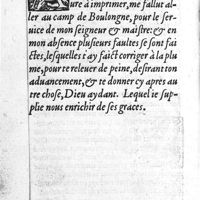 ure à imprimer, me fallut al-
ler au camp de Boulongne, pour le ser-
uice de mon seigneur & maistre: & en
mon absence plusieurs faultes se sont fai
ctes, lesquelles i'ay faict corriger à la plu
me, pour te releuer de peine, desirant ton
aduancement, & te donner cy apres au-
tre chose, Dieu aydant. Lequel ie sup-
plie nous enrichir de ses graces.